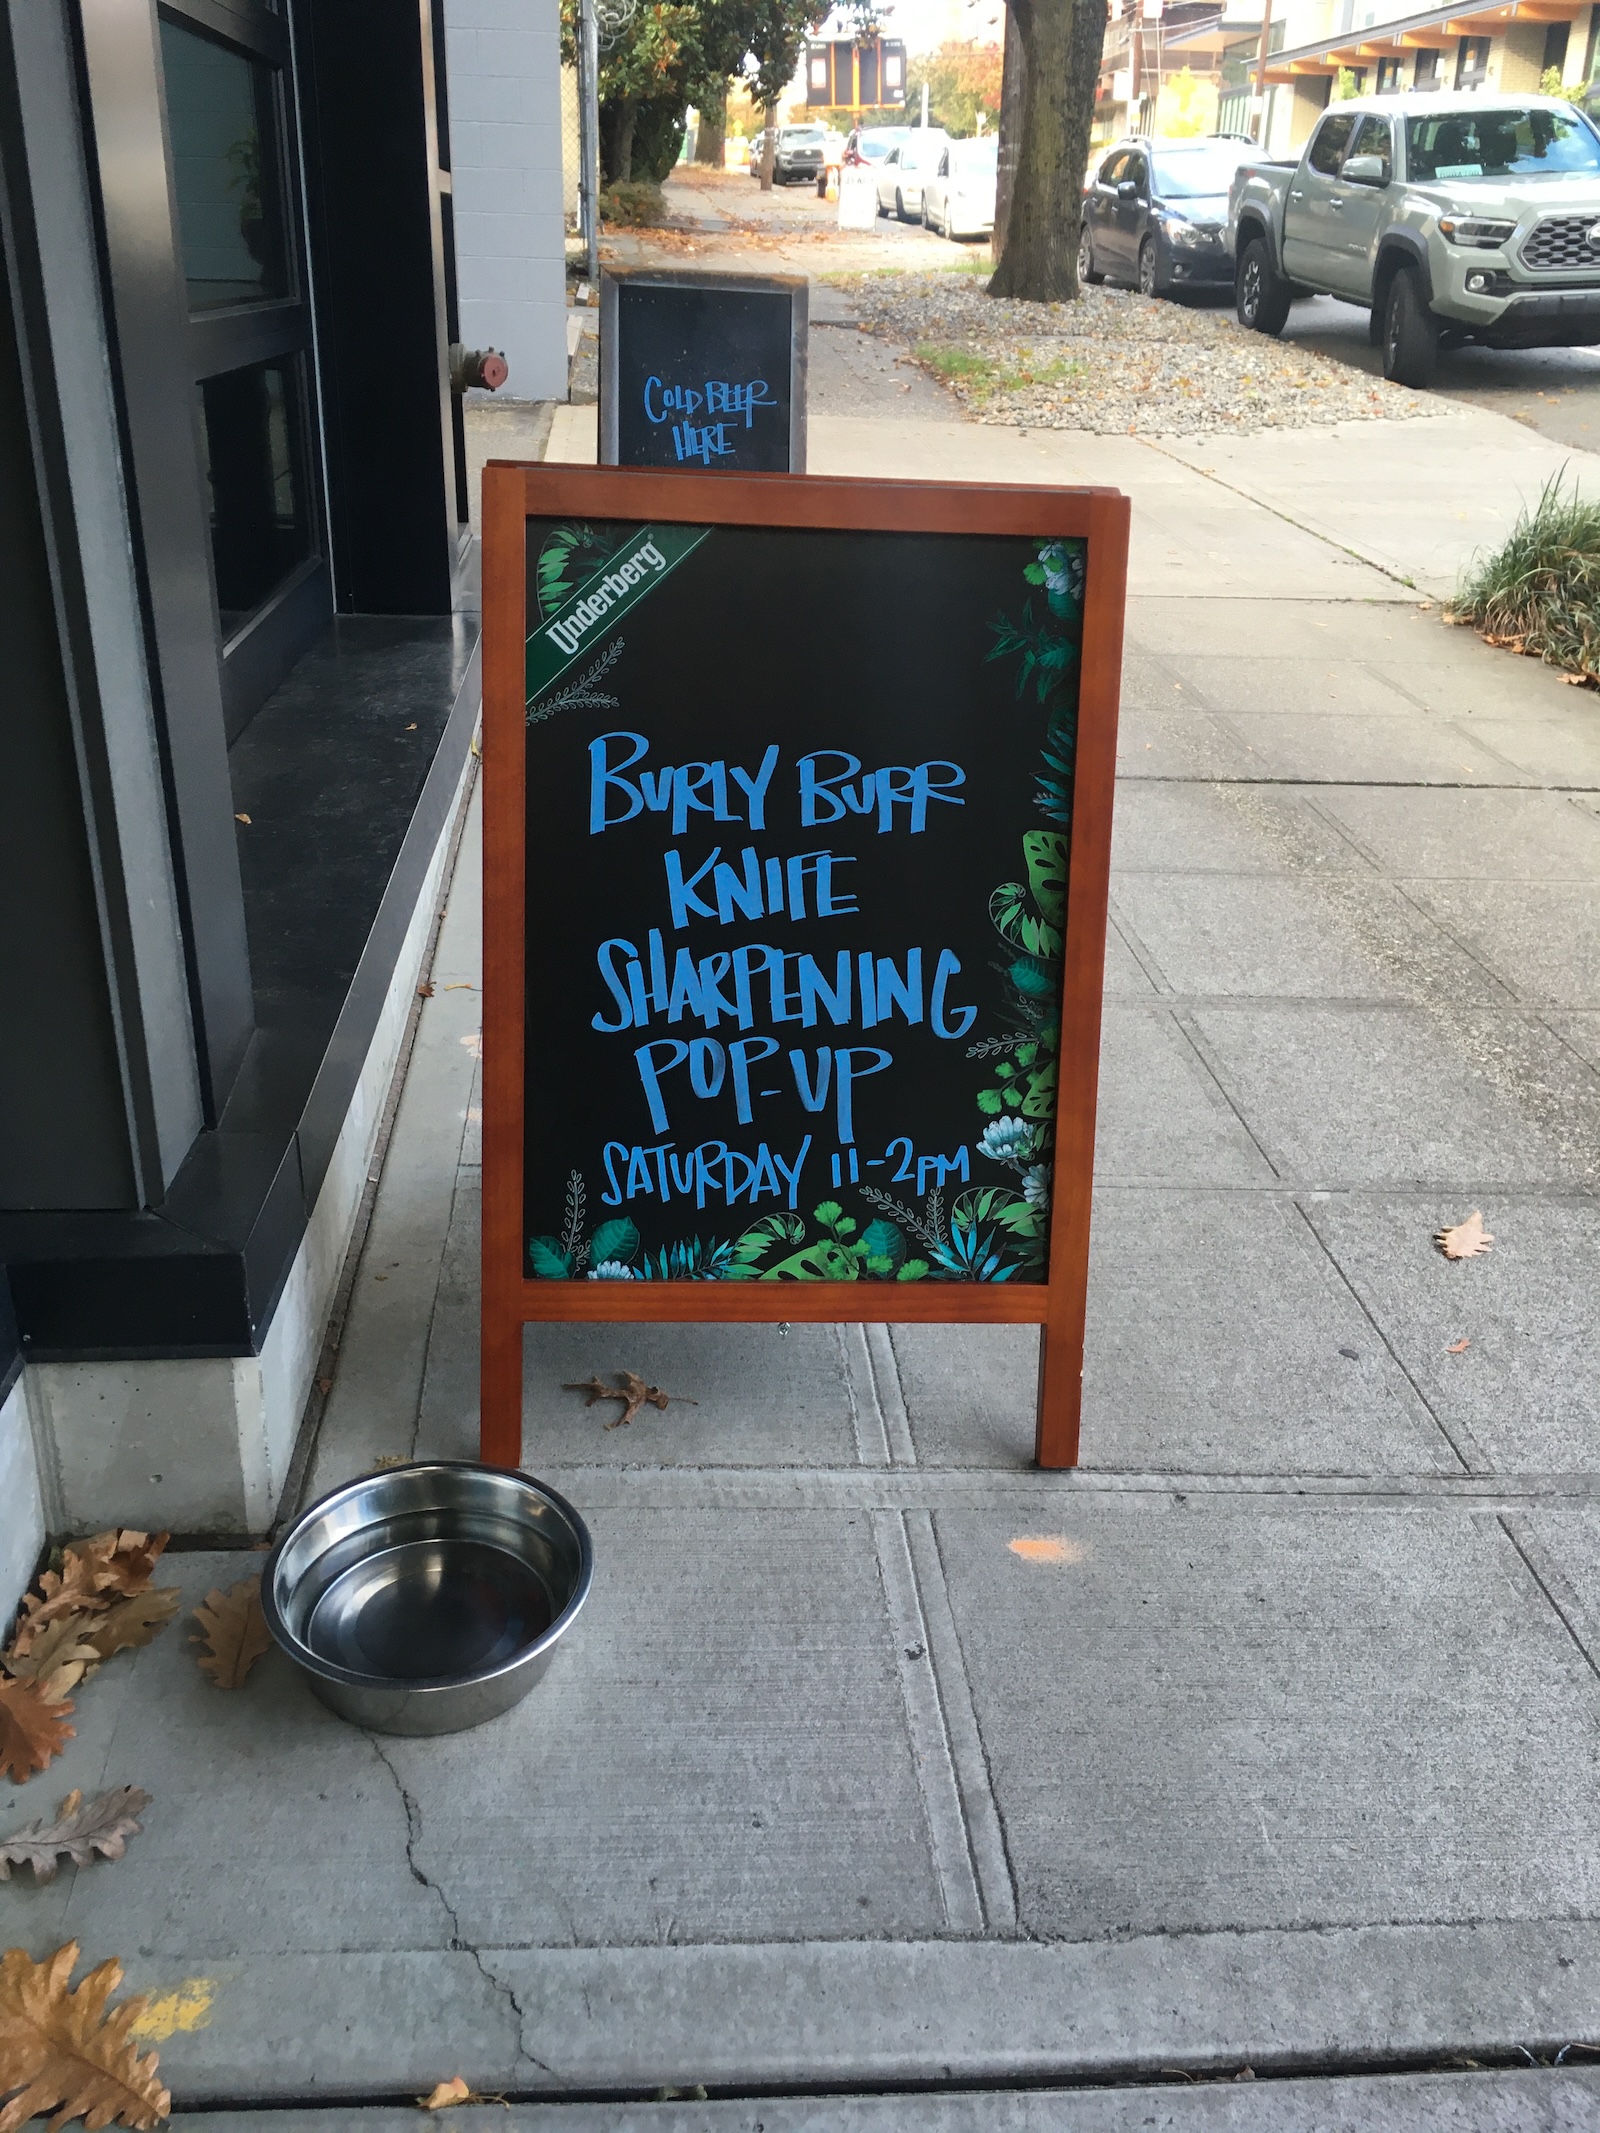 COLD BEER
HERE
Underberg
BURLY BURR
KNIFE
SHARPENING
POP-UP
SATURDAY 11-2PM